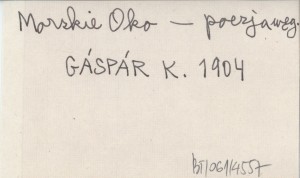 Morskie Oko — poezja węg.
GÁSPÁR K. 1904
BT/061/4557